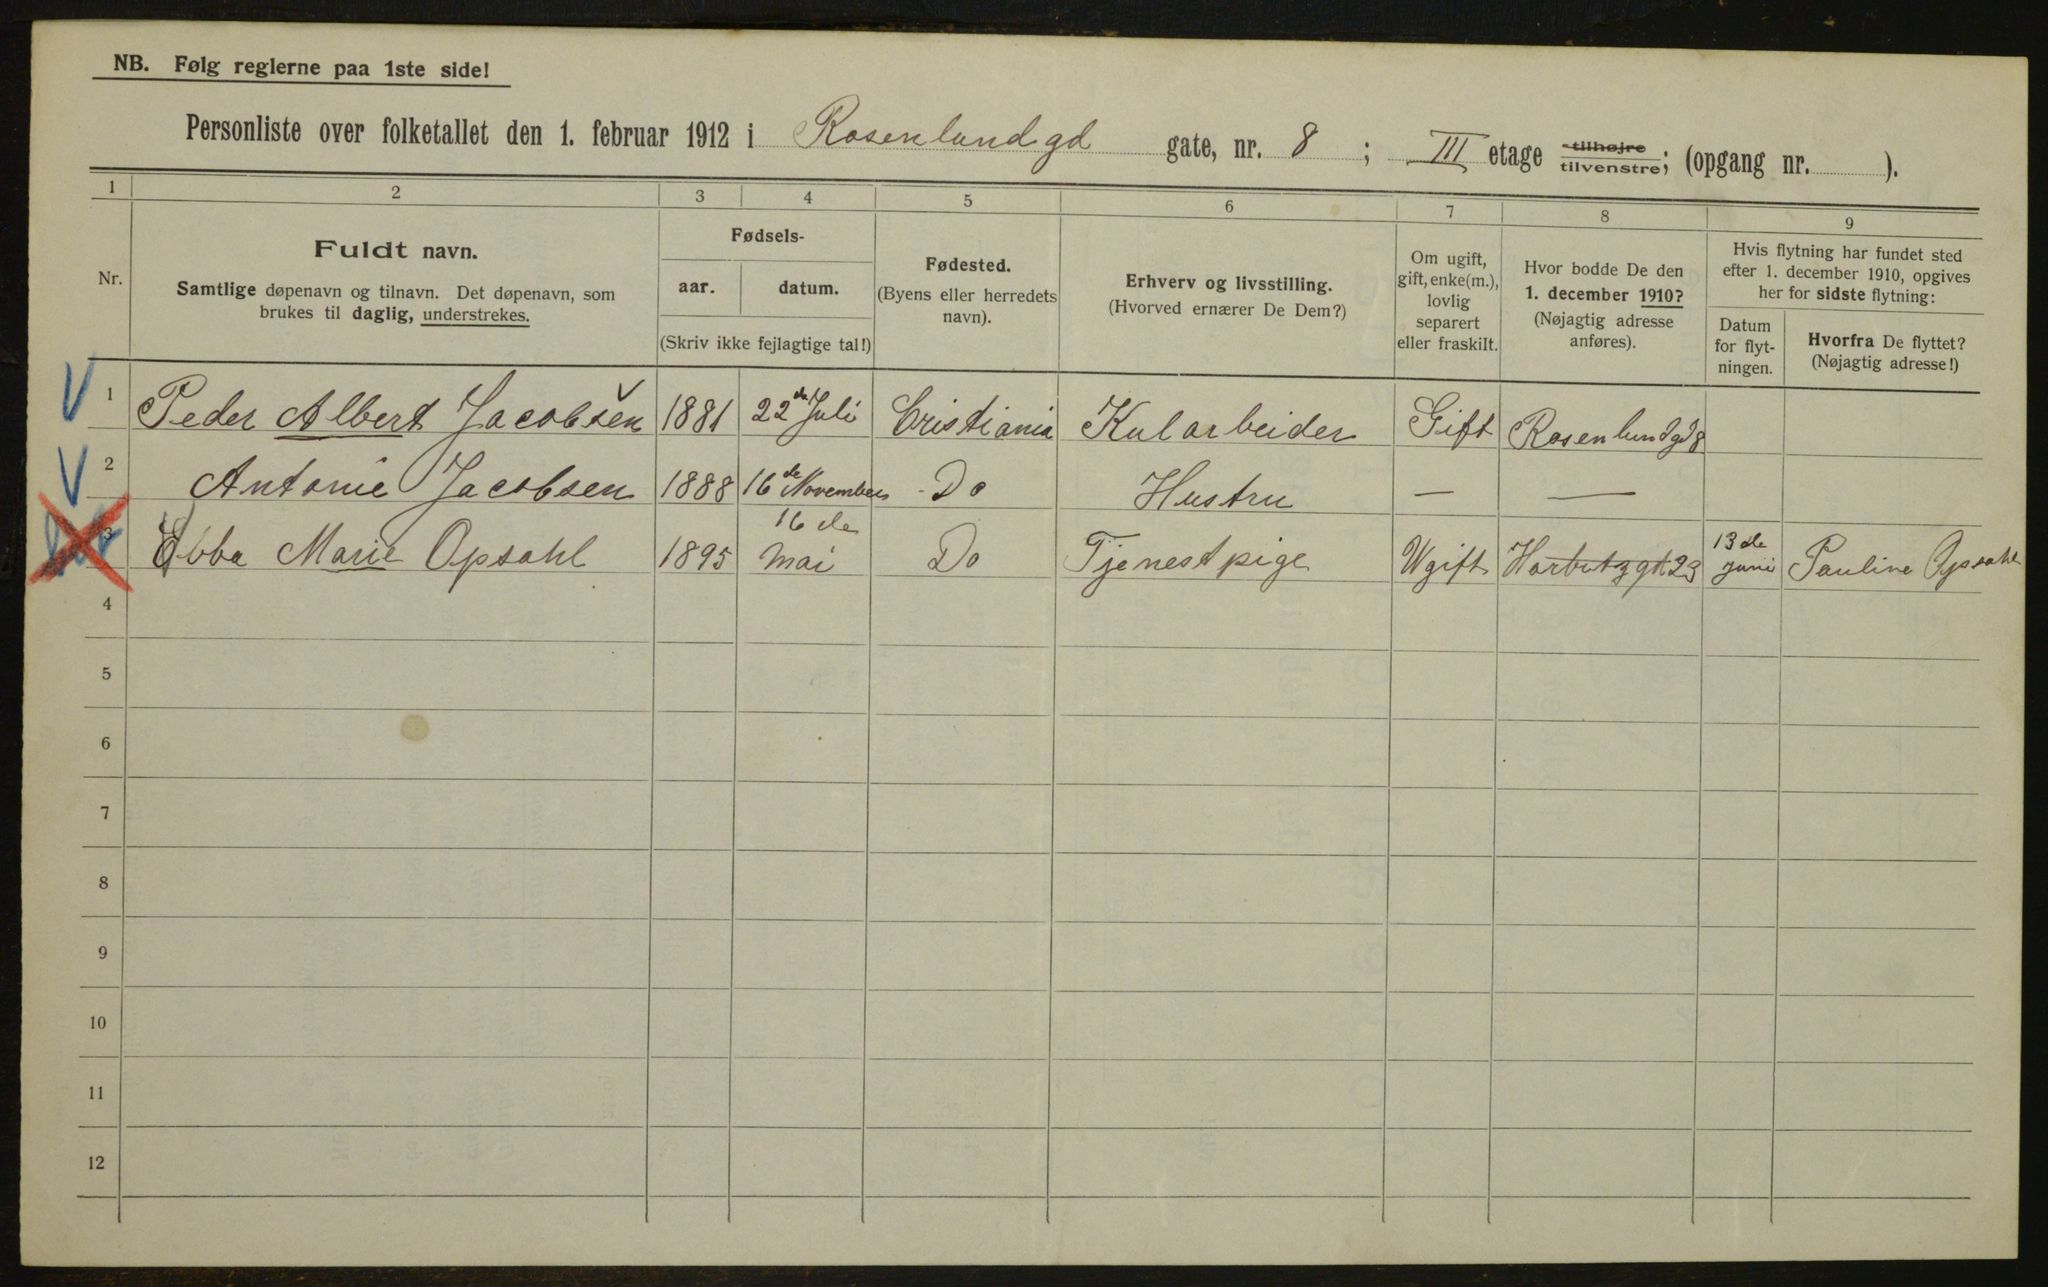 NB. Følg reglerne paa 1ste side!
Personliste over folketallet den 1. februar 1912 i Rosenlundgd gate, nr. 8 ; III etage tilhøjre tilvenstre; (opgang nr. ).
1 2 3 4 5 6 7 8 9
Nr.
Fuldt navn.
Samtlige døpenavn og tilnavn. Det døpenavn, som
brukes til daglig, understrekes.
Fødsels-
aar. datum.
(Skriv ikke fejlagtige tal!)
Fødested.
(Byens eller herredets
navn).
Erhverv og livsstilling.
(Hvorved ernærer De Dem?)
Om ugift,
gift, enke(m.),
lovlig
separert
eller fraskilt.
Hvor bodde De den
1. december 1910?
(Nøjagtig adresse
anføres).
Hvis flytning har fundet sted
efter 1. december 1910, opgives
her for sidste flytning:
Datum
for flyt-
ningen.
Hvorfra De flyttet?
(Nøjagtig adresse!)
1 Peder Albert Jacobsen 1881 22de Juli Cristiania Kularbeider Gift Rosenlundgd 8
2 Antonie Jacobsen 1888 16de November Do Hustru — —
3 Ebba Marie Opsahl 1895 16de mai Do Tjenestpige Ugift 23 13de juni Pauline Opsahl
4
5
6
7
8
9
10
11
12